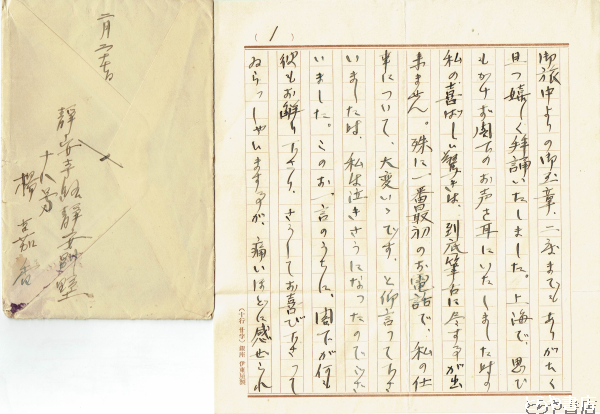 (1)
御旅中よりの御玉章、二度までもありがたく
且つ嬉しく拝誦いたしました。上海で、思ひ
もかけず閣下のお声を耳にいたしました時の
私の喜ばしい驚きは、到底筆舌に尽す事が出
来ません。殊に、一番最初のお電話で、私の仕
事について、大変いゝです。と仰言って下さ
いましたは、私は泣きさうになったのでござ
いました。このお一言のうちに、閣下が何も
彼もお解り下さり、さうしてお喜び下さって
ゐらっしゃいます事が、痛いほどに感ぜられ
(十行廿字) 銀座 伊東屋製
二月二十
静安寺路静安別墅
十八号
楊
とらや書店